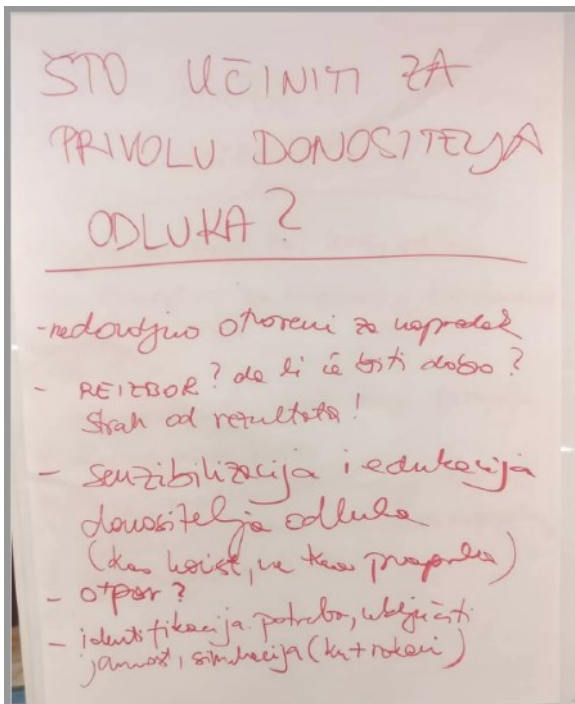 ŠTO UČINITI ZA
PRIVOLU DONOSITELJA
ODLUKA?
- nedovoljno otvoreni za napredak
- REIZBOR? da li će biti dobo?
Strah od rezultata!
- senzibilizacija i edukacija
donositelja odluka
(kao korist, ne kao)
- otpor?
- identifikacija potreba, uključiti
javnost, simulacija (